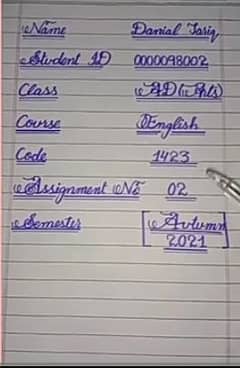 Name Danial Tariq
Student ID 0000098002
Class AD (Arts)
Course English
Code 1423
Assignment No 02
Semester [Autumn
2021]